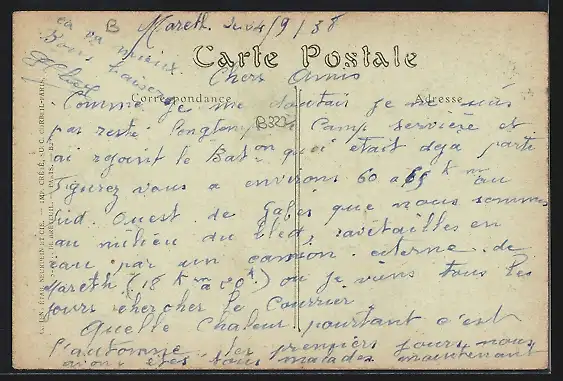 B
Mareth. le 24/9/38
ça va mieux
Bons baisers
Carte Postale
Chers Amis
Correspondance
Adresse
Comme je me doutais je ne suis
pas resté longtemps Camp Servière et
B322
ai rejoint le Bat^on qui était déja parti
Figurez vous a environs 60 a 65 Km au
Sud. Ouest de Gabès que nous sommes
au milieu du bled, ravitailles en
eau par un camion citerne de
Mareth (18 Km a 20^K) ou je vais tous les
jours chercher le Courrier
Quelle Chaleur pourtant c'est
l'automne. les premiers jours nous
avons étés tous malades maintenant